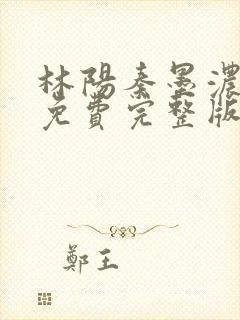 林陽秦墨濃
免費完整版
鄭王